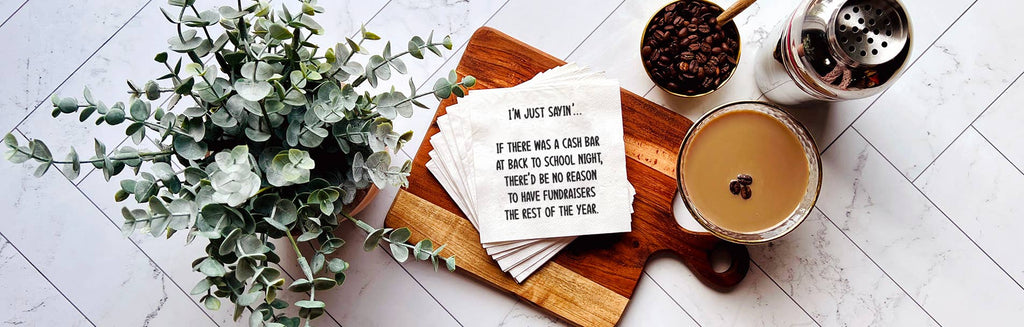 I'M JUST SAYIN'...
IF THERE WAS A CASH BAR
AT BACK TO SCHOOL NIGHT,
THERE'D BE NO REASON
TO HAVE FUNDRAISERS
THE REST OF THE YEAR.